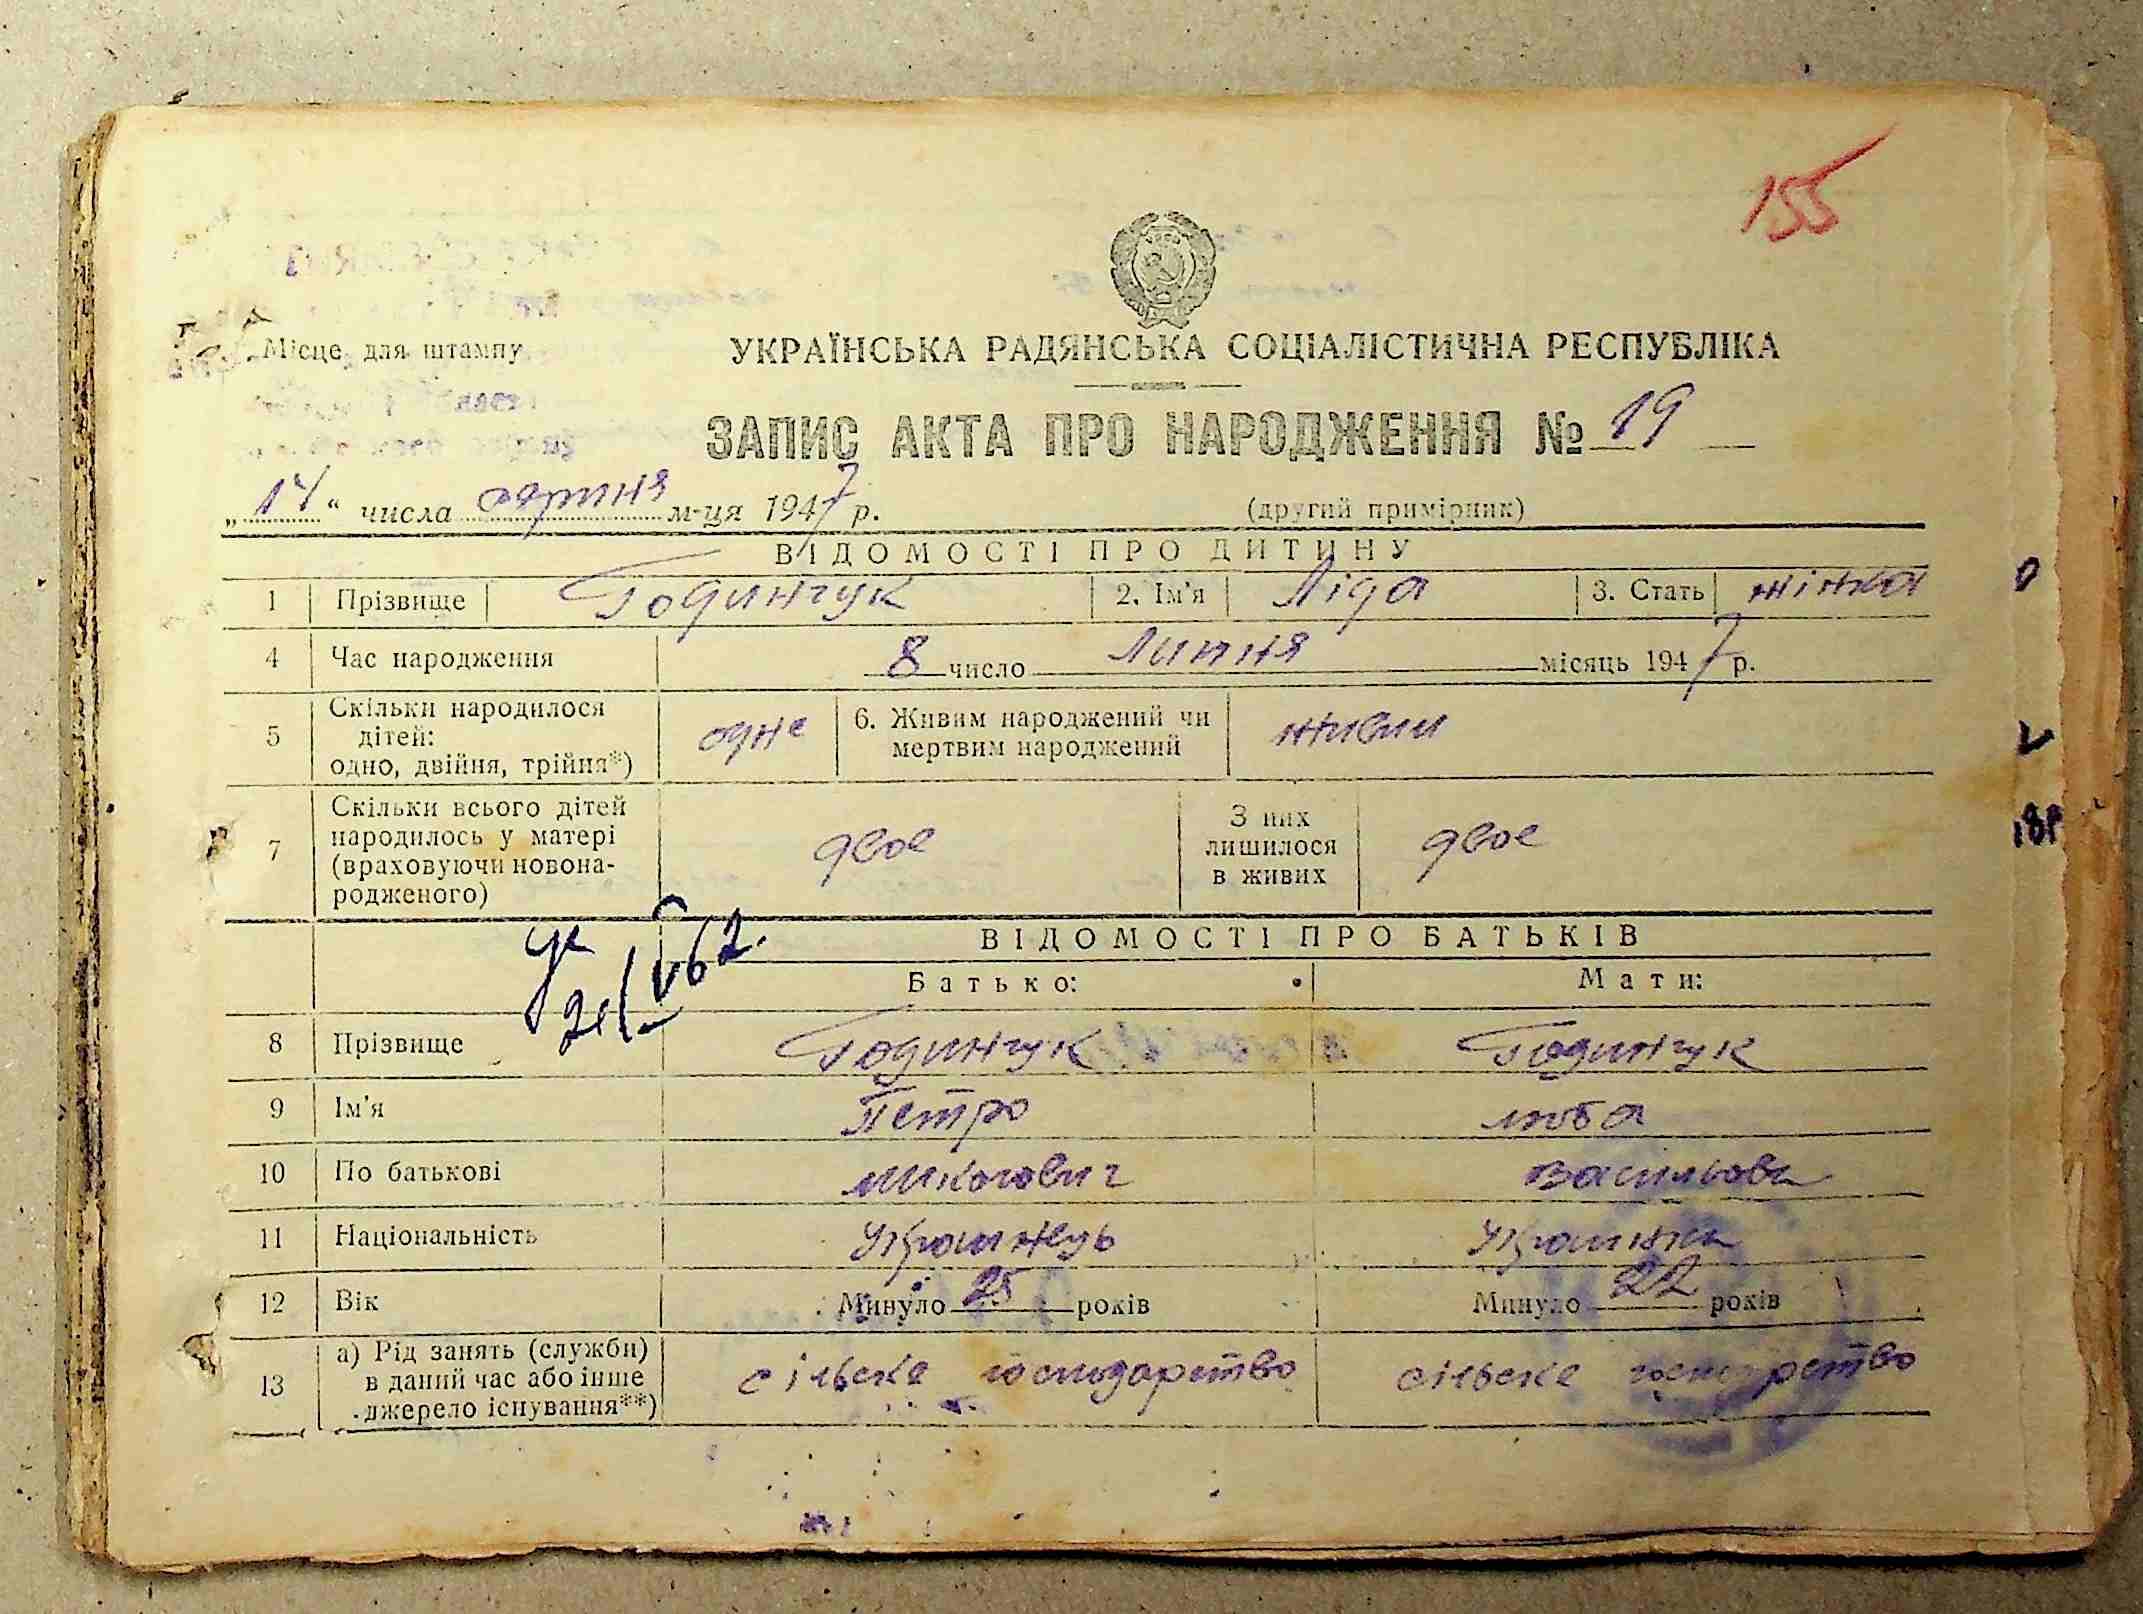 155
Місце для штампу
УКРАЇНСЬКА РАДЯНСЬКА СОЦІАЛІСТИЧНА РЕСПУБЛІКА
ЗАПИС АКТА ПРО НАРОДЖЕННЯ № 19
„14“ числа серпня м-ця 1947 р. (другий примірник)
ВІДОМОСТІ ПРО ДИТИНУ
1 Прізвище Годинчук 2. Ім'я Ліда 3. Стать жінка
4 Час народження 8 число Липня місяць 1947 р.
5 Скільки народилося дітей: одно, двійня, трійня*) одне 6. Живим народжений чи мертвим народжений живим
7 Скільки всього дітей народилось у матері (враховуючи новонародженого) двое З них лишилося в живих двое
ВІДОМОСТІ ПРО БАТЬКІВ
Батько: Мати:
8 Прізвище Годинчук Годинчук
9 Ім'я Петро люба
10 По батькові Миколович Васильовн
11 Національність Українець Українка
12 Вік Минуло 25 років Минуло 22 років
13 а) Рід занять (служби) в даний час або інше джерело існування**) сільске господарство сільске господарство